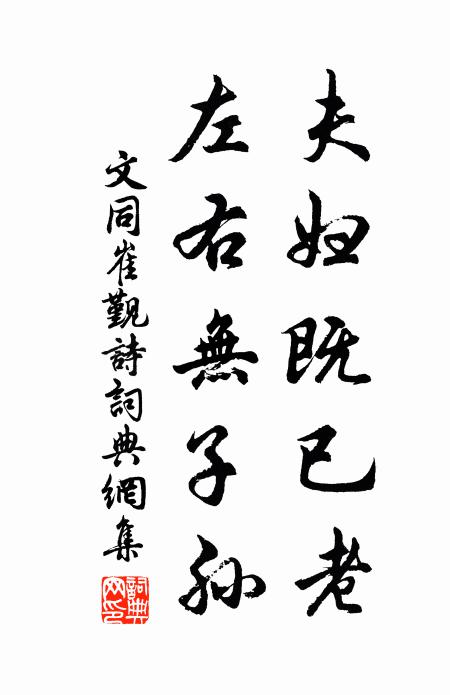 夫妇既已老
左右無子孙
文同崔觐詩詞典網集
詞典網印